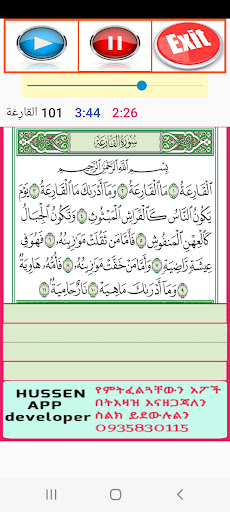 Exit
القارعة 101 3:44 2:26
سُورَةُ القَارِعَةِ
بِسْمِ اللَّهِ الرَّحْمَٰنِ الرَّحِيمِ
الْقَارِعَةُ ١ مَا الْقَارِعَةُ ٢ وَمَا أَدْرَىٰكَ مَا الْقَارِعَةُ ٣ يَوْمَ
يَكُونُ النَّاسُ كَالْفَرَاشِ الْمَبْثُوثِ ٤ وَتَكُونُ الْجِبَالُ
كَالْعِهْنِ الْمَنفُوشِ ٥ فَأَمَّا مَن ثَقُلَتْ مَوَٰزِينُهُ ٦ فَهُوَ فِي
عِيشَةٍ رَّاضِيَةٍ ٧ وَأَمَّا مَنْ خَفَّتْ مَوَٰزِينُهُ ٨ فَأُمُّهُ هَاوِيَةٌ
٩ وَمَا أَدْرَىٰكَ مَا هِيَهْ ١٠ نَارٌ حَامِيَةٌ ١١
HUSSEN
APP
developer
የምትፈልጓቸውን አፖች
በትእዛዝ እናዘጋጃለን
ስልክ ይደውሉልን
0935830115